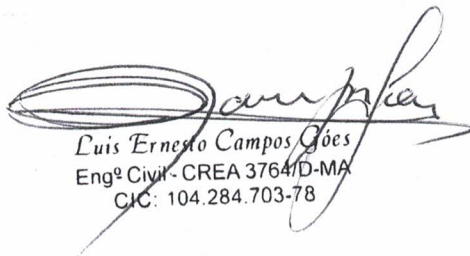 Luis Ernesto Campos Góes
Engº Civil - CREA 3764/D-MA
CIC: 104.284.703-78